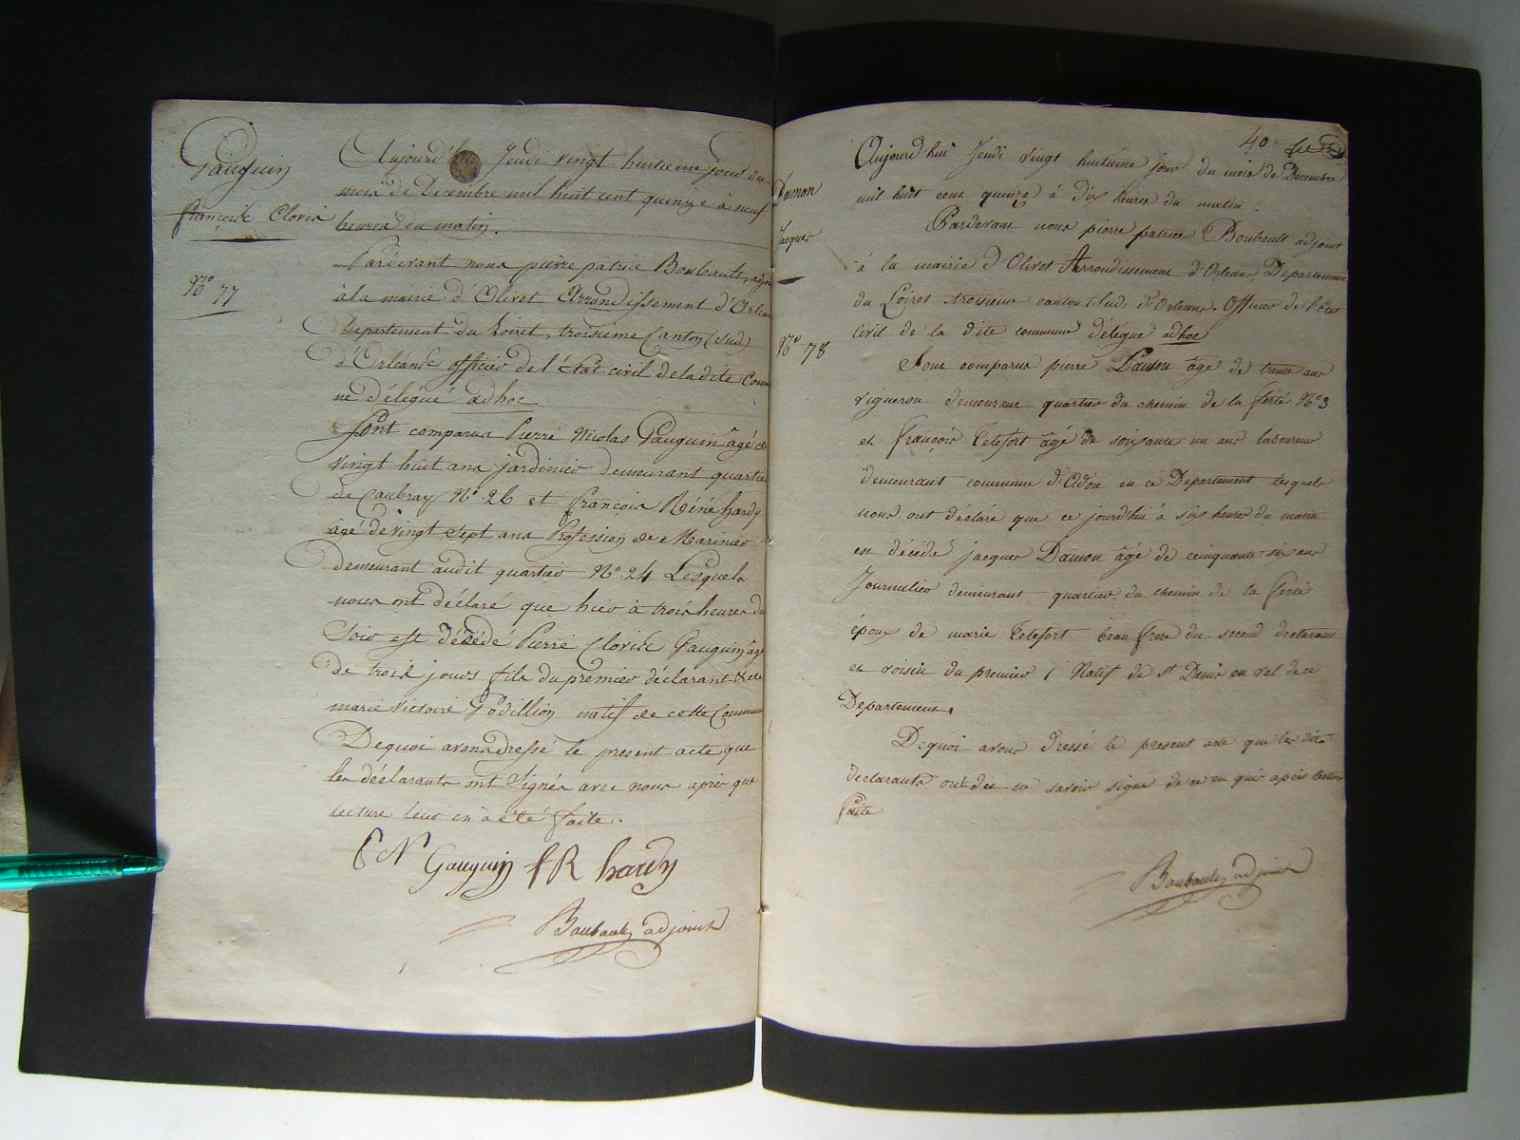 Gauguin
françoise Clovis
N° 77
Aujourd'hui Jeudi vingt huitieme jour du
mois de Decembre mil huit cent quinze à neuf
heures du matin.
Pardevant nous pierre patrice Boubault, adjoint
à la mairie d'Olivet Arrondissement d'Orléans
Département du Loiret, troisième Canton (sud)
d'Orléans officier de l'état civil de la dite Commu
ne délégué adhoc
Sont comparus Pierre Nicolas Gauguin âgé de
vingt huit ans jardinier demeurant quartier
de Caubray N° 26 et françois Réné hardy
âgé de vingt sept ans Profession de Marinier
demeurant audit quartier N° 24 Lesquels
nous ont déclaré que hier à trois heures du
Soir est décédé Pierre Clovis Gauguin âgé
de trois jours fils du premier déclarant & de
marie victoire Godillion natif de cette Commune
De quoi avons dressé le present acte que
les déclarants ont Signés avec nous après que
lecture leur en à été faite.
P N Gauguin f R hardy
Boubault adjoint
40
Damon
Jacques
N° 78
Aujourd'hui Jeudi vingt huitième jour du mois de Decembre
mil huit cent quinze à dix heures du matin
Pardevant nous pierre patrice Boubault adjoint
à la mairie d'Olivet Arrondissement d'Orléans Departement
du Loiret troisieme canton Sud d'Orleans. Officier de l'état
Civil de la dite commune délégué adhoc
Sont comparus pierre Damon âgé de trente ans
vigneron demeurant quartier du chemin de la ferté N° 3
et françois Telefort âgé de soixante un ans laboureur
demeurant commune d'Ardon en ce Departement lesquels
nous ont déclaré que ce jourd'hui à six heures du matin
est décédé jacques Damon âgé de cinquante six ans
Journalier demeurant quartier du chemin de la ferté
époux de marie Telefort beau frere du second declarant
et voisin du premier / Natif de St Denis en val de ce
Departement.
De quoi avons dressé le present acte que les dits
declarants ont dit ne savoir signé de ce enquis après lecture
faite
Boubault adjoint